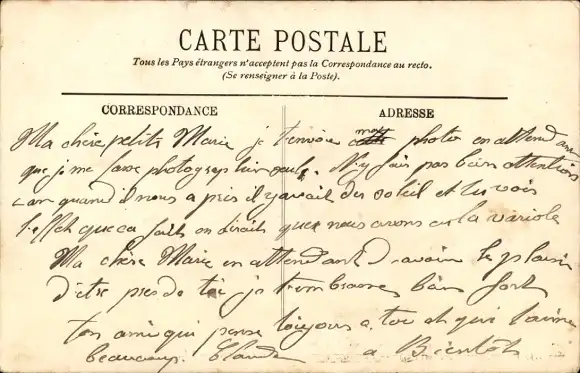 CARTE POSTALE
Tous les Pays étrangers n'acceptent pas la Correspondance au recto.
(Se renseigner à la Poste).
CORRESPONDANCE
ADRESSE
Ma chère petite Marie je t'envoie mon photo en attendant
que je me fasse photographier seule. N'y fais pas bien attention
car quand il nous a pris il y avait du soleil et tu vois
l'effet que ca fait on dirait que nous avons eu la variole
Ma chère Marie en attendant d'avoir le plaisir
d'être près de toi je t'embrasse bien fort
ton amie qui pense toujours a toi et qui t'aime
beaucoup. Claude a Bientôt